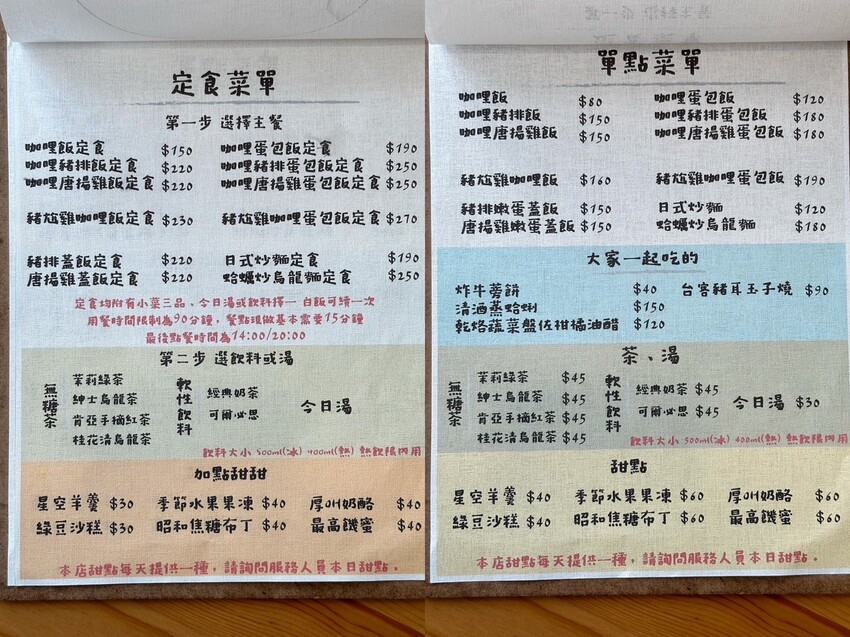 定食菜單
第一步 選擇主餐
咖哩飯定食 $150 咖哩蛋包飯定食 $190
咖哩豬排飯定食 $220 咖哩豬排蛋包飯定食 $250
咖哩唐揚雞飯定食 $220 咖哩唐揚雞蛋包飯定食 $250
豬尬雞咖哩飯定食 $230 豬尬雞咖哩蛋包飯定食 $270
豬排蓋飯定食 $220 日式炒麵定食 $190
唐揚雞蓋飯定食 $220 蛤蠣炒烏龍麵定食 $250
定食均附有小菜三品、今日湯或飲料擇一 白飯可續一次
用餐時間限制為90分鐘，餐點現做基本需要15分鐘
最後點餐時間為14:00/20:00
第二步 選飲料或湯
無糖茶
茉莉綠茶
紳士烏龍茶
肯亞手摘紅茶
桂花清烏龍茶
軟性飲料
經典奶茶
可爾必思
今日湯
飲料大小 500ml(冰) 400ml(熱) 熱飲限內用
加點甜甜
星空羊羹 $30 季節水果果凍 $40 厚川奶酪 $40
綠豆沙糕 $30 昭和焦糖布丁 $40 最高饑蜜 $40
本店甜點每天提供一種，請詢問服務人員本日甜點。
單點菜單
咖哩飯 $80 咖哩蛋包飯 $120
咖哩豬排飯 $150 咖哩豬排蛋包飯 $180
咖哩唐揚雞飯 $150 咖哩唐揚雞蛋包飯 $180
豬尬雞咖哩飯 $160 豬尬雞咖哩蛋包飯 $190
豬排嫩蛋蓋飯 $150 日式炒麵 $120
唐揚雞嫩蛋蓋飯 $150 蛤蠣炒烏龍麵 $180
大家一起吃的
炸牛蒡餅 $40 台客豬耳玉子燒 $90
清酒蒸蛤蜊 $150
乾烙蔬菜盤佐柑橘油醋 $120
茶、湯
無糖茶
茉莉綠茶 $45
紳士烏龍茶 $45
肯亞手摘紅茶 $45
桂花清烏龍茶 $45
軟性飲料
經典奶茶 $45
可爾必思 $45
今日湯 $30
飲料大小 500ml(冰) 400ml(熱) 熱飲限內用
甜點
星空羊羹 $40 季節水果果凍 $60 厚川奶酪 $60
綠豆沙糕 $40 昭和焦糖布丁 $60 最高饑蜜 $60
本店甜點每天提供一種，請詢問服務人員本日甜點。